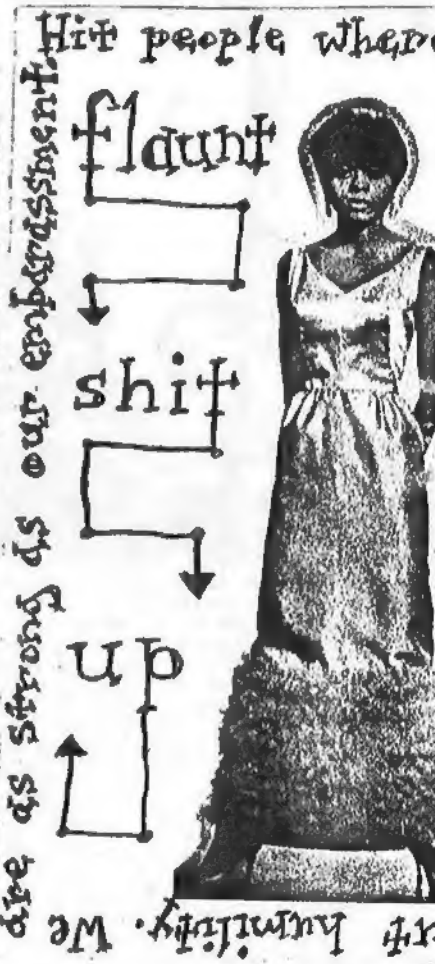 Hit people where
flaunt
shit
up
humility. We
are as strong as our embarrassment.